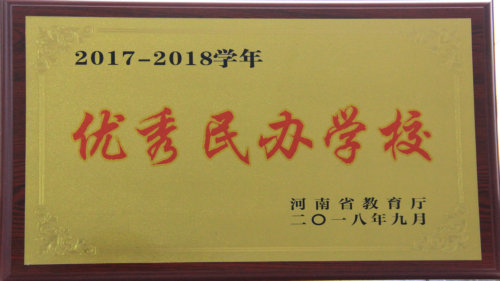 2017-2018学年
优秀民办学校
河南省教育厅
二〇一八年九月